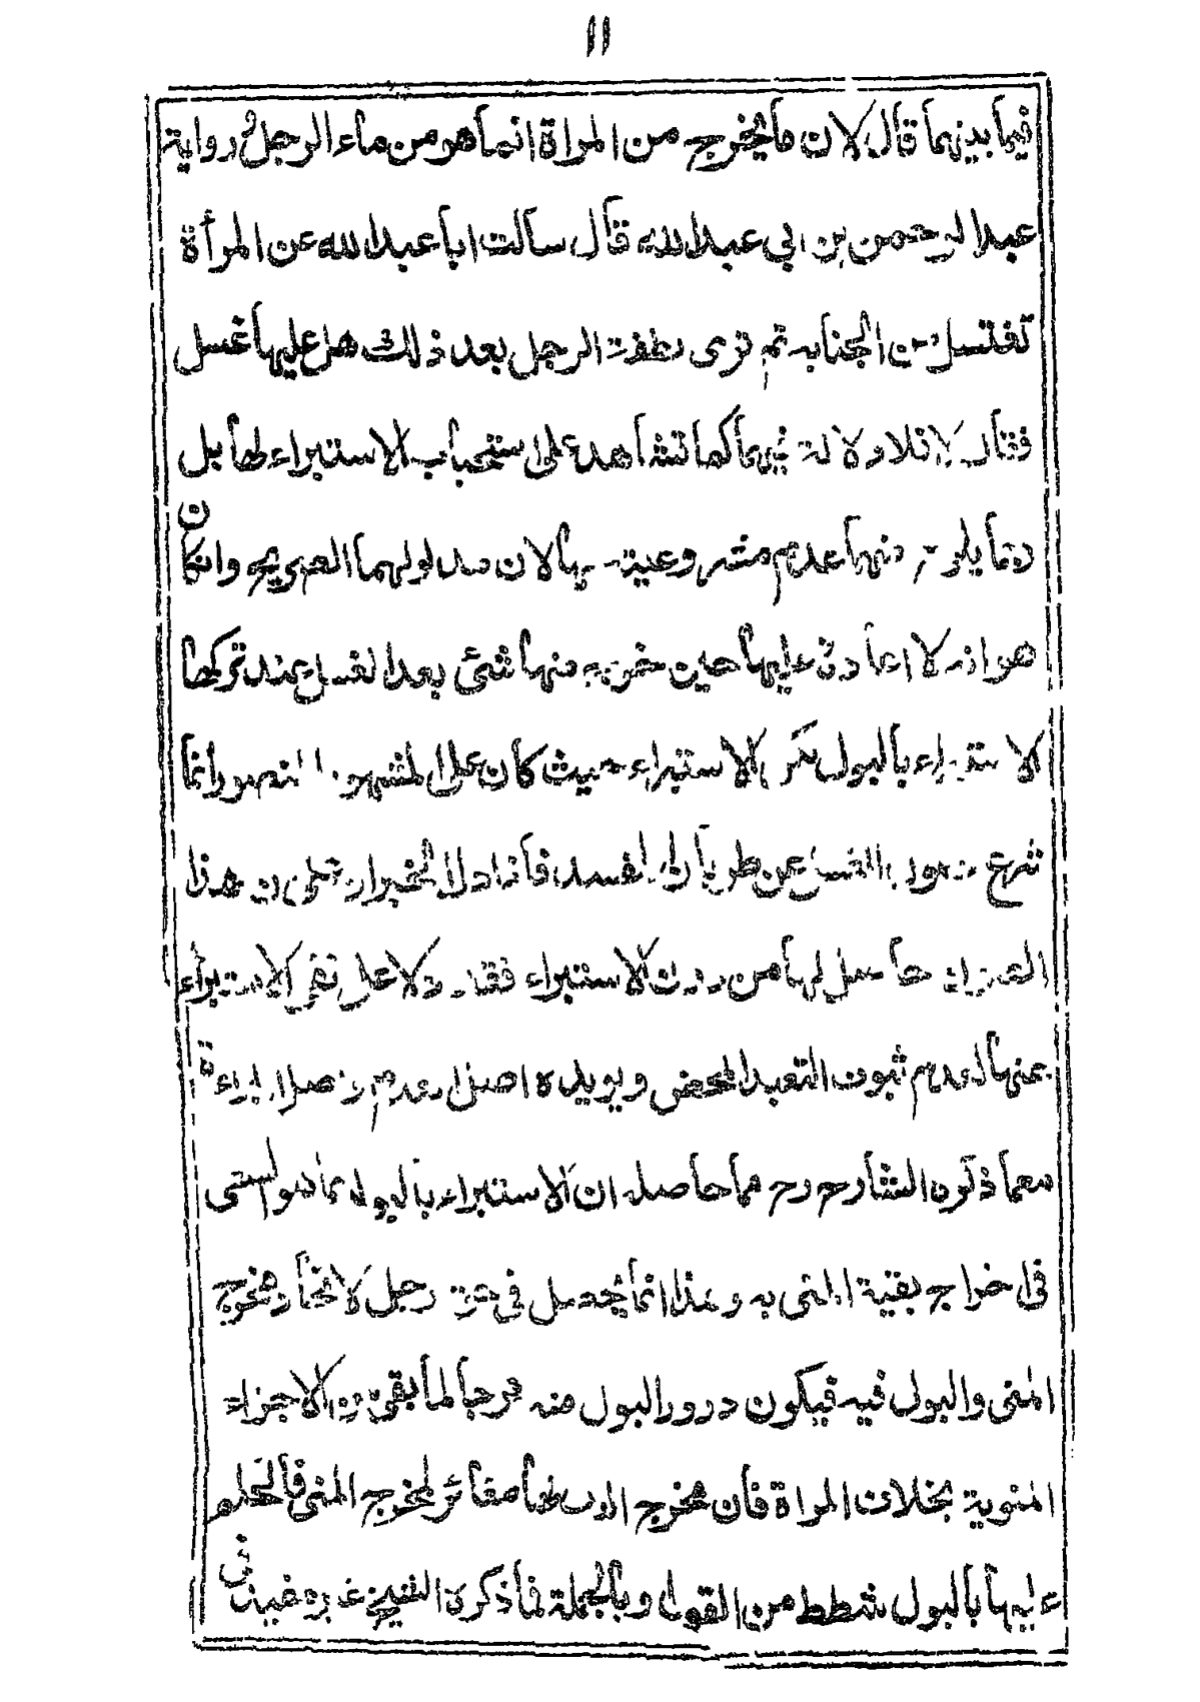 ١١
فيما بينهما قال لان ما يخرج من المراة انما هو من ماء الرجل و رواية
عبد الرحمن بن ابي عبد الله قال سالت ابا عبد الله عن المرأة
تغتسل من الجنابه ثم ترى نطفة الرجل بعد ذلك هل عليها غسل
فقال لا فلا دلالة فيهما كما تشاهد على استحباب الاستبراء لها بل
ربما يلوح منهما عدم مشروعيته بها لان مدلولهما الصريح وان كان
هو انه لا اعادة عليها حين خروج منها شئ بعد الغسل عند تركها
الاستبراء بالبول لكن الاستبراء حيث كان على المشهور المنصور انما
شرع لصون الغسل عن طريان المفسد فاذا دل الخبران على ان هذا
الصون حاصل لها من دون الاستبراء فقد دلا على نفي الاستبراء
عنها لعدم ثبوت التعبد المحض ويويده اصل العدم و اصل البراءة
معما ذكره الشارح رح مما حاصله ان الاستبراء بالبول انما هو السعى
في اخراج بقية المنى به وهذا انما يحصل في حق رجل لاتحاد مخرج
المنى والبول فيه فيكون درور البول منه مخرجا لما بقى من الاجزاء
المنوية بخلاف المراة فان مخرج البول لها مغائر لمخرج المنى فالحكم
عليها بالبول شطط من القول وبالجملة فما ذكره الشيخ غيره